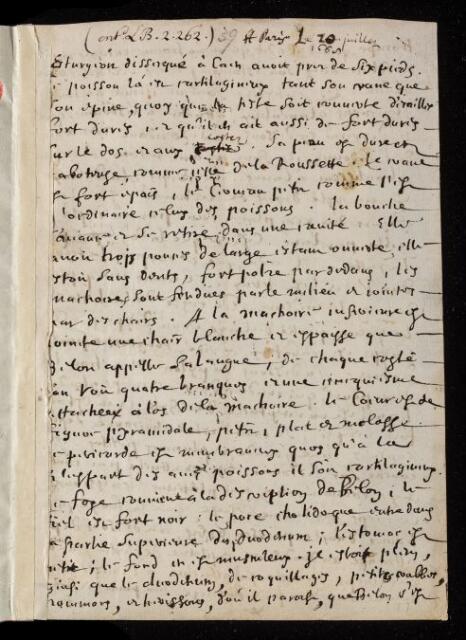 (ent. LB. 2. 262.) 39 A Paris Le 20 juillet
Sturgion dissequé a Caen avoit pres de six pieds.
poisson la est cartilagineux tant son crane que
son épine, quoy que sa teste soit couverte d'écailles
fort dures et qu'il en ait aussi de fort dures
sur le dos et aux costez. Sa peau est dure et
raboteuse, comme celle de la Roussette. Le crane
est fort épais, le cerveau petit comme l'est
l'ordinaire celuy des poissons. la bouche
s'avance et se retire dans une cavité. Elle
avoit trois pouces de large estant ouverte, elle
estoit sans dents, fort polie par dedans, les
machoires sont fendues par le milieu et jointes
par des chairs. A la machoire inferieure est
jointe une chair blanche et espaisse que
Belon appelle la langue, de chaque costé
on voit quatre branques et une cinquiesme
attachée a l'os de la machoire. le coeur est de
figure pyramidale, petit, plat et molasse.
le pericarde est membraneux quoy qu'a la
pluspart des autres poissons il soit cartilagineux.
le foye convient a la description de Belon, le
fiel est fort noir. le pore cholidoque entre dans
la partie superieure du duodenum; l'estomac est
petit; le fond en est musculeux. il estoit plein,
ainsi que le duodenum, de coquillages, petits crabbes,
et herissons, d'où il paroist que Belon s'est